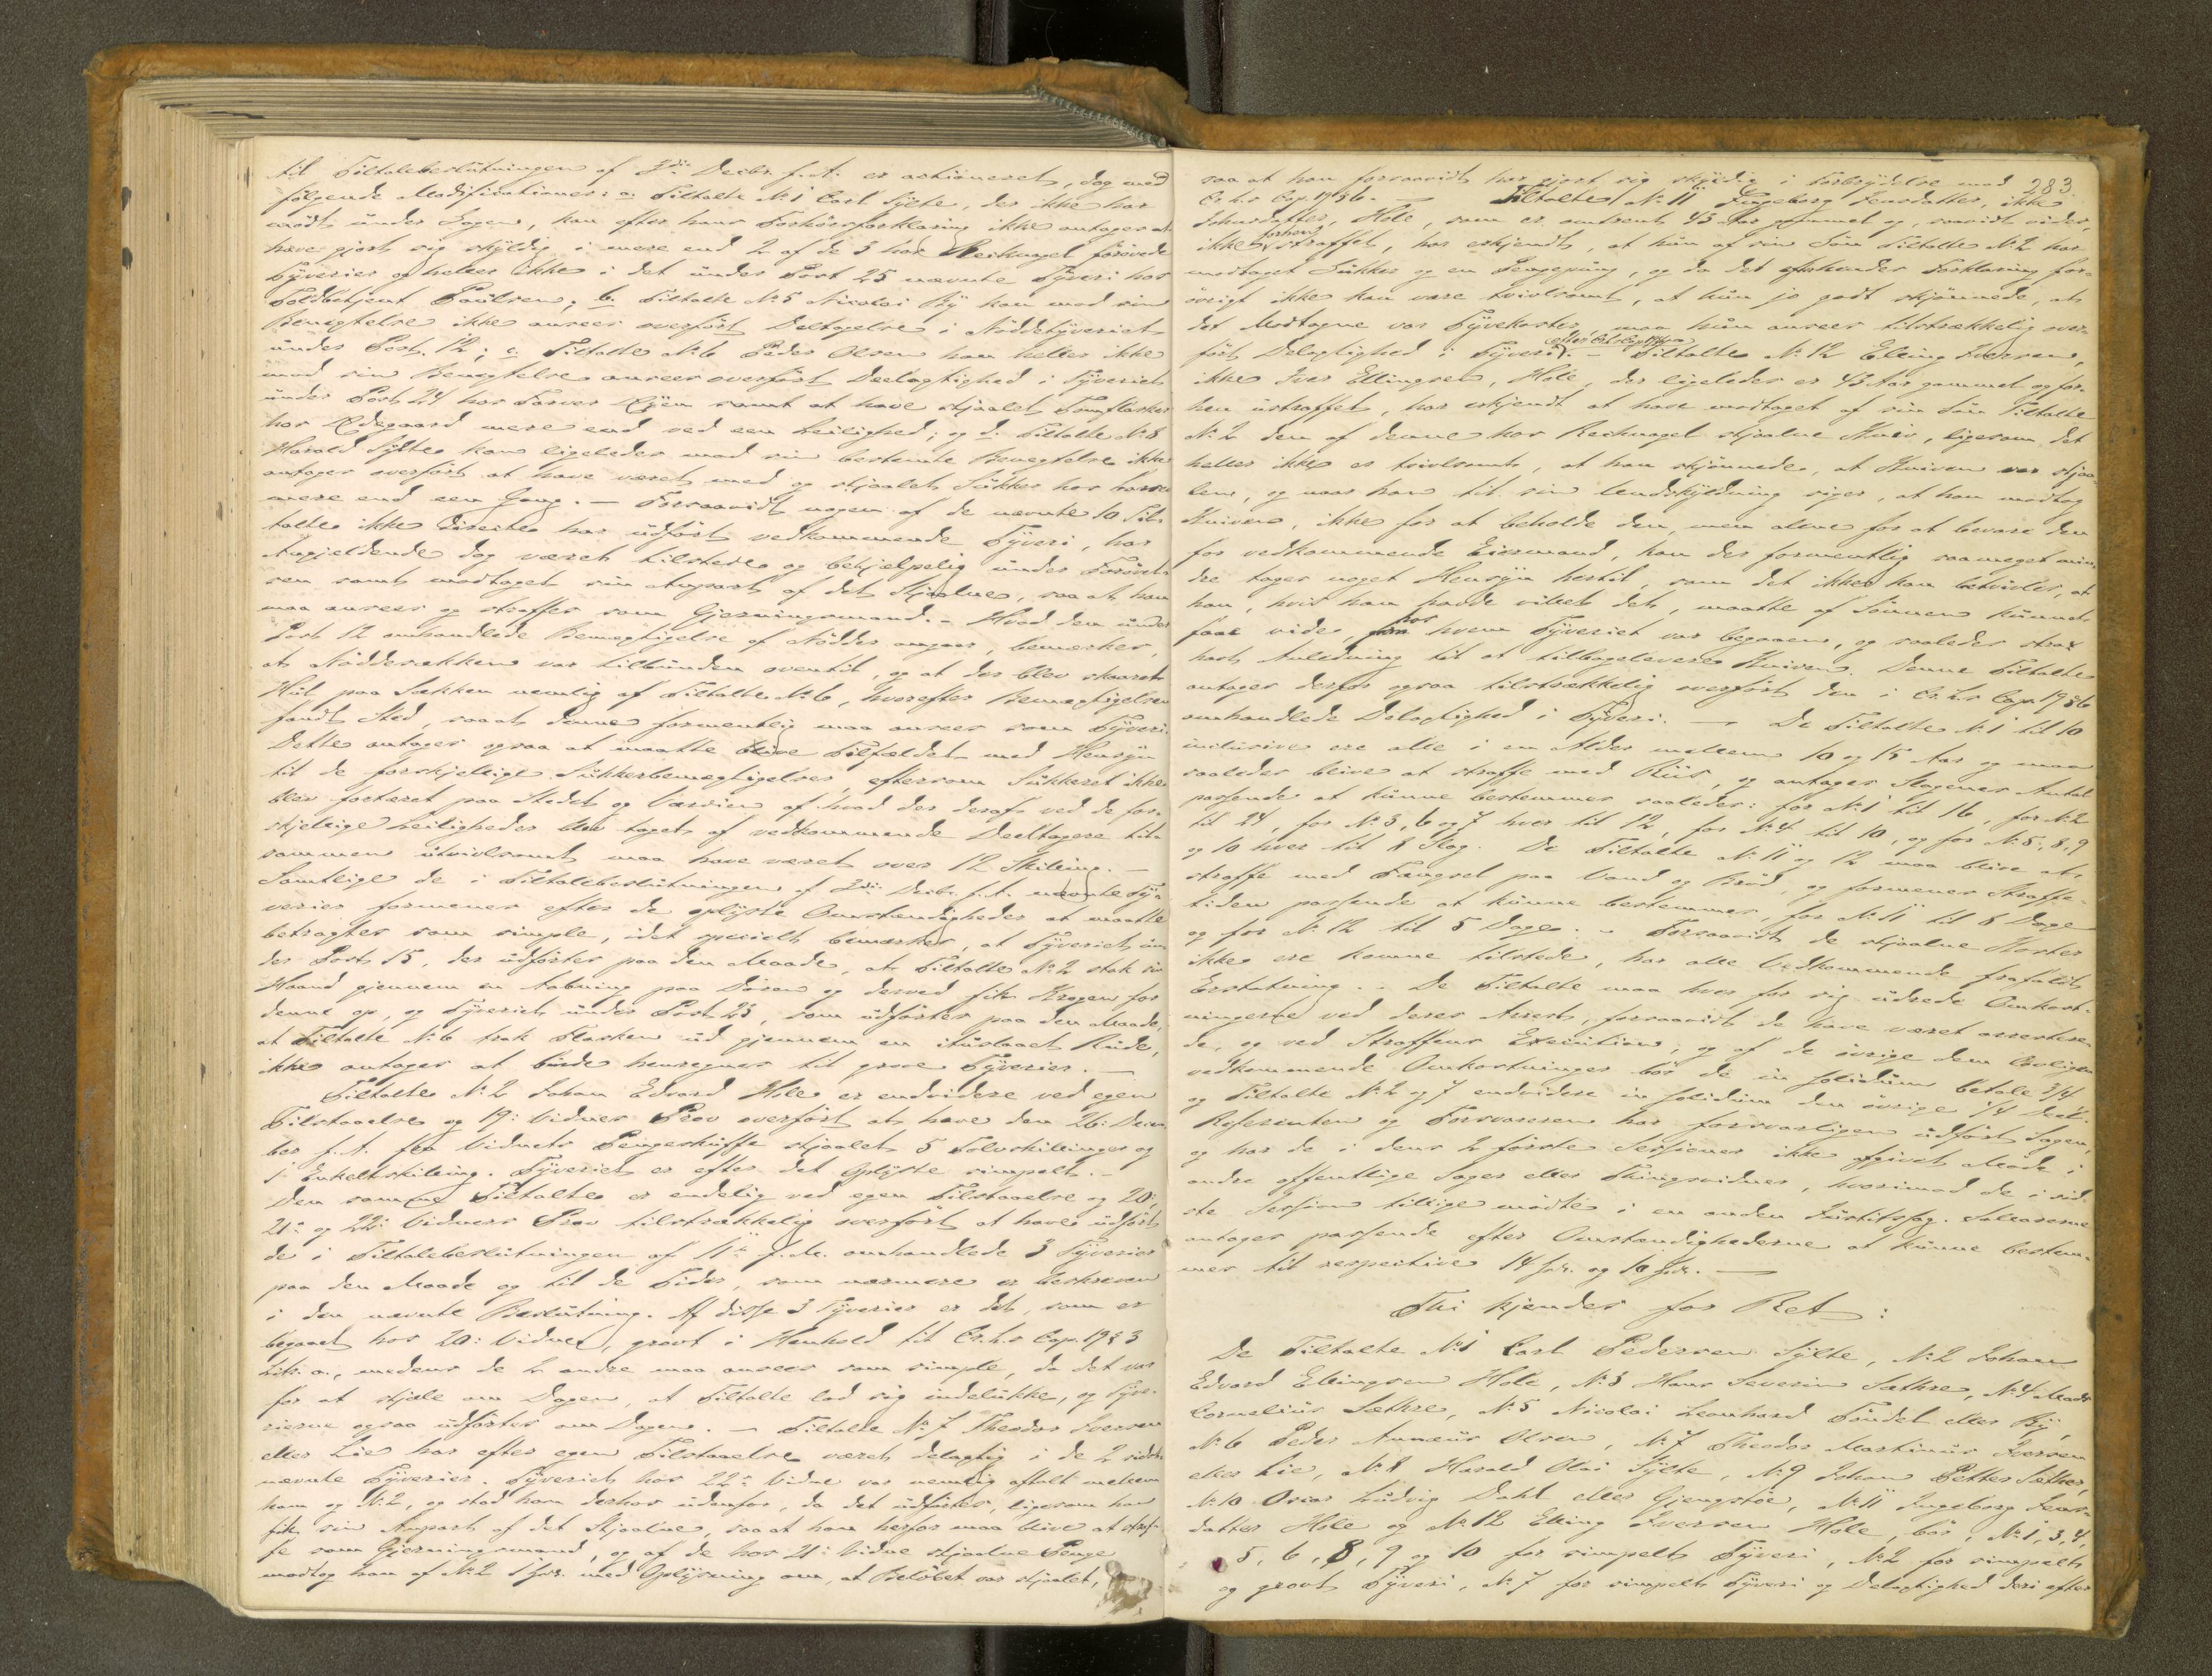 til Tiltalebeslutningen af 3die Decbr. f. A. er actioneret, dog med
følgende Modificationer: a. Tiltalte No 1 Carl Sylte, der ikke har
mødt under Sagen, kan efter hans Forhørsforklaring ikke antages at
have gjort sig skyldig i mere end 2 af de 3 hos Recknagel forøvede
Tyverier og heller ikke i det under Post 25 nævnte Tyveri hos
Toldbetjent Poulsen; b. Tiltalte No 5 Nicolai Ry kan mod sin
Benegtelse ikke ansees overført Deltagelse i Nøddetyveriet
under Post. 12; c. Tiltalte No 6 Peder Olsen kan heller ikke
mod sin Benegtelse ansees overført Deelagtighed i Tyveriet
under Post 24 hos Farver Øyen samt at have stjaalet Tomflasker
hos Ødegaard mere end ved een Leilighed; og d. Tiltalte No 8
Harald Sylte kan ligeledes mod sin bestemte Benegtelse ikke
antages overført at have været med og stjaalet Sukker hos
mere end een Gang. — Forsaavidt nogen af de nævnte 10 Til-
talte ikke directe har udført vedkommende Tyveri, har
Angjeldende dog været tilstede og behjelpelig under Forøvel-
sen samt modtaget sin Anpart af det Stjaalne, saa at han
maa ansees og straffes som Gjerningsmand. - Hvad den under
Post 12 omhandlede Bemægtigelse af Nødder angaar, bemærkes,
at Nøddesækken var tilbunden oventil, og at der blev skaaret
Hul paa Sækken nemlig af Tiltalte No 6, hvorefter Bemægtigelsen
fandt Sted, saa at denne formentlig maa ansees som Tyveri.
Dette antages ogsaa at maatte blive Tilfældet med Hensyn
til de forskjellige Sukkerbemægtigelser, eftersom Sukkeret ikke
blev fortæret paa Stedet og Værdien af hvad der deraf ved de for-
skjellige Leiligheder blev taget af vedkommende Deeltagere til-
sammen utvivlsomt maa have været over 12 Skilling. —
Samtlige de i Tiltalebeslutningen af 3die Decbr. f. A. nævnte Ty-
verier formenes efter de oplyste Omstændigheder at maatte
betragtes som simple, idet specielt bemærkes, at Tyveriet un-
der Post 15, der udførtes paa den Maade, at Tiltalte No 2 stak sin
Haand gjennem en Aabning paa Døren og derved fik Krogen for
denne op, og Tyveriet under Post 23, som udførtes paa den Maade,
at Tiltalte No 6 trak Flasken ud gjennem en ituslaaet Rude,
ikke antages at burde henregnes til grove Tyverier. —
Tiltalte No 2 Johan Edvard Hole er endvidere ved egen
Tilstaaelse og 19: Vidnes Prov overført at have den 26: Decem
ber f. A. fra Vidnets Pengeskuffe stjaalet 5 Tolvskillinger og
1 Enkeltskilling. Tyveriet er efter det Oplyste simpelt. -
Den samme Tiltalte er endelig ved egen Tilstaaelse og 20:
21: og 22: Vidners Prov tilstrækkelig overført at have udført
de i Tiltalebeslutningen af 11te f. M. omhandlede 3 Tyverier
paa den Maade og til de Tider, som nærmere er beskreven
i den nævnte Beslutning. Af disse 3 Tyverier er det, som er
begaaet hos 20: Vidne, grovt i Henhold til Cr. L.s Cap. 19 § 3
Litr. a., medens de 2 andre maa ansees som simple, da det var
for at stjæle om Dagen, at Tiltalte lod sig indelukke, og Tyve-
rierne ogsaa udførtes om Dagen. — Tiltalte No 7 Theodor Iversen
eller Lie har efter egen Tilstaaelse været delagtig i de 2 sidst-
nævnte Tyverier. Tyveriet hos 22: Vidne var nemlig aftalt mellem
ham og No 2, og stod han derhos udenfor, da det udførtes, ligesom han
fik sin Anpart af det Stjaalne, saa at han herfor maa blive at straf-
fe som Gjerningsmand, og af de hos 21: Vidne stjaalne Penge
modtog han af No 2 1 Spd. med Oplysning om, at Beløbet var stjaalet,
283.
saa at han forsaavidt har gjort sig skyldig i Forbrydelse mod
Cr. L.s Cap. 19 § 6. — Tiltalte No 11 Ingeborg Jensdatter, ikke
Johnsdatter, Hole, som er omtrent 43 Aar gammel og, saavidt vides,
ikke forhen straffet, har erkjendt, at hun af sin Søn Tiltalte No 2 har
modtaget Sukker og en Pengepung, og da det efter hendes Forklaring for-
øvrigt ikke kan være tvivlsomt, at hun jo godt skjønnede, at
det Modtagne var Tyvekoster, maa hun ansees tilstrækkelig over-
ført Delagtighed i Tyveri. - Tiltalte No 12 Elling Iversen,
ikke Iver Ellingsen, Hole, der ligeledes er 43 Aar gammel og for-
hen ustraffet, har erkjendt at have modtaget af sin Søn Tiltalte
No 2 den af denne hos Recknagel stjaalne Kniv, ligesom det
heller ikke er tvivlsomt, at han skjønnede, at Kniven var stjaa-
len, og naar han til sin Undskyldning siger, at han modtog
Kniven, ikke for at beholde den, men alene for at bevare den
for vedkommende Eiermand, kan der formentlig saameget min-
dre tages noget Hensyn hertil, som det ikke kan betvivles, at
han, hvis han havde villet det, maatte af Sønnen kunnet
faae vide, hos hvem Tyveriet var begaaen, og saaledes strax
havt Anledning til at tilbagelevere Kniven. Denne Tiltalte
antages derfor ogsaa tilstrækkelig overført den i Cr. L.s Cap. 19 § 6
omhandlede Delagtighed i Tyveri. — De Tiltalte No 1 til 10
inclusive ere alle i en Alder mellem 10 og 15 Aar og maa
saaledes blive at straffe med Riis, og antages Slagenes Antal
passende at kunne bestemmes saaledes: for No 1 til 16, for No 2
til 24, for No 3, 6 og 7 hver til 12, for No 4 til 10, og for No 5, 8, 9
og 10 hver til 8 Slag. De Tiltalte No 11 og 12 maa blive at
straffe med Fængsel paa Vand og Brød, og formenes Straffe-
tiden passende at kunne bestemmes, for No 11 til 8 Dage
og for No 12 til 5 Dage. - Forsaavidt de stjaalne Koster
ikke ere komne tilstede, har alle Vedkommende frafaldt
Erstatning. - De Tiltalte maa hver for sig udrede Omkost-
ningerne ved deres Arrest, forsaavidt de have været arrestere-
de, og ved Straffens Execution, og af de øvrige dem lovligen
vedkommende Omkostninger bør de in solidum betale 3/4
og Tiltalte No 2 og 7 endvidere in solidum den øvrige 1/4 Deel.
Referenten og Forsvareren har forsvarligen udført Sagen,
og har de i dens 2 første Sessioner ikke afgivet Møde i
andre offentlige Sager eller Thingsvidner, hvorimod de i sid-
ste Session tillige mødte i en anden Justitssag. Salarerne
antages passende efter Omstændighederne at kunne bestem-
mes til respective 14 Spd. og 10 Spd. —
Thi kjendes for Ret:
De Tiltalte No 1 Carl Pedersen Sylte, No 2 Johan
Edvard Ellingsen Hole, No 3 Hans Severin Sæthre, No 4 Mads
Cornelius Sæthre, No 5 Nicolai Leonhard Trudel eller Ry,
No 6 Peder Olsen, No 7 Theodor Martinus Iversen
eller Lie, No 8 Harald Olai Sylte, No 9 Johan Petter Sæther,
No 10 Oscar Ludvig Dahl eller Gjengstøe, No 11 Ingeborg Jens-
datter Hole og No 12 Elling Iversen Hole, bør, No 1, 3, 4,
5, 6, 8, 9 og 10 for simpelt Tyveri, No 2 for simpelt
og grovt Tyveri, No 7 for simpelt Tyveri og Delagtighed deri efter